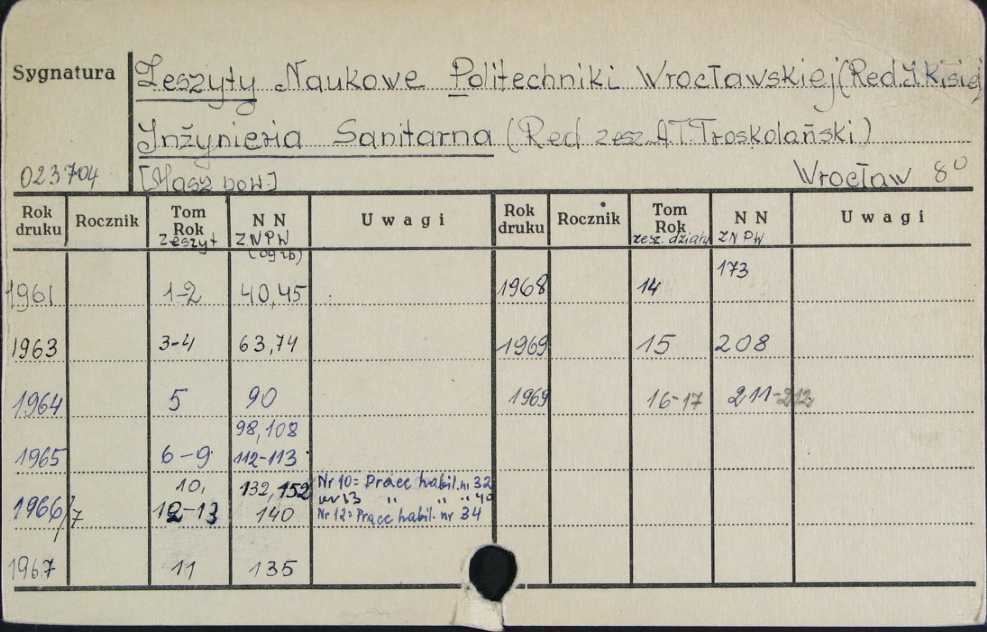 Sygnatura Zeszyty Naukowe Politechniki Wrocławskiej (Red. I. Kisiej
Inżynieria Sanitarna (Red zesz. A T Troskolański)
023704 [Masz pow.] Wrocław 8⁰
Rok druku Rocznik Tom Rok zeszyt N N ZNPW (og zb) Uwagi Rok druku Rocznik Tom Rok zesz. działu N N ZNPW Uwagi
1961 1-2 40,45 1968 14 173
1963 3-4 63,74 1969 15 208
1964 5 90 1969 16-17 211-213
1965 6-9 98,108 112-113
1966/7 10, 12-13 132, 152 140 Nr 10 = Prace habil. nr 32
nr 13 " " " 40
Nr 12 = Prace habil. nr 34
1967 11 135